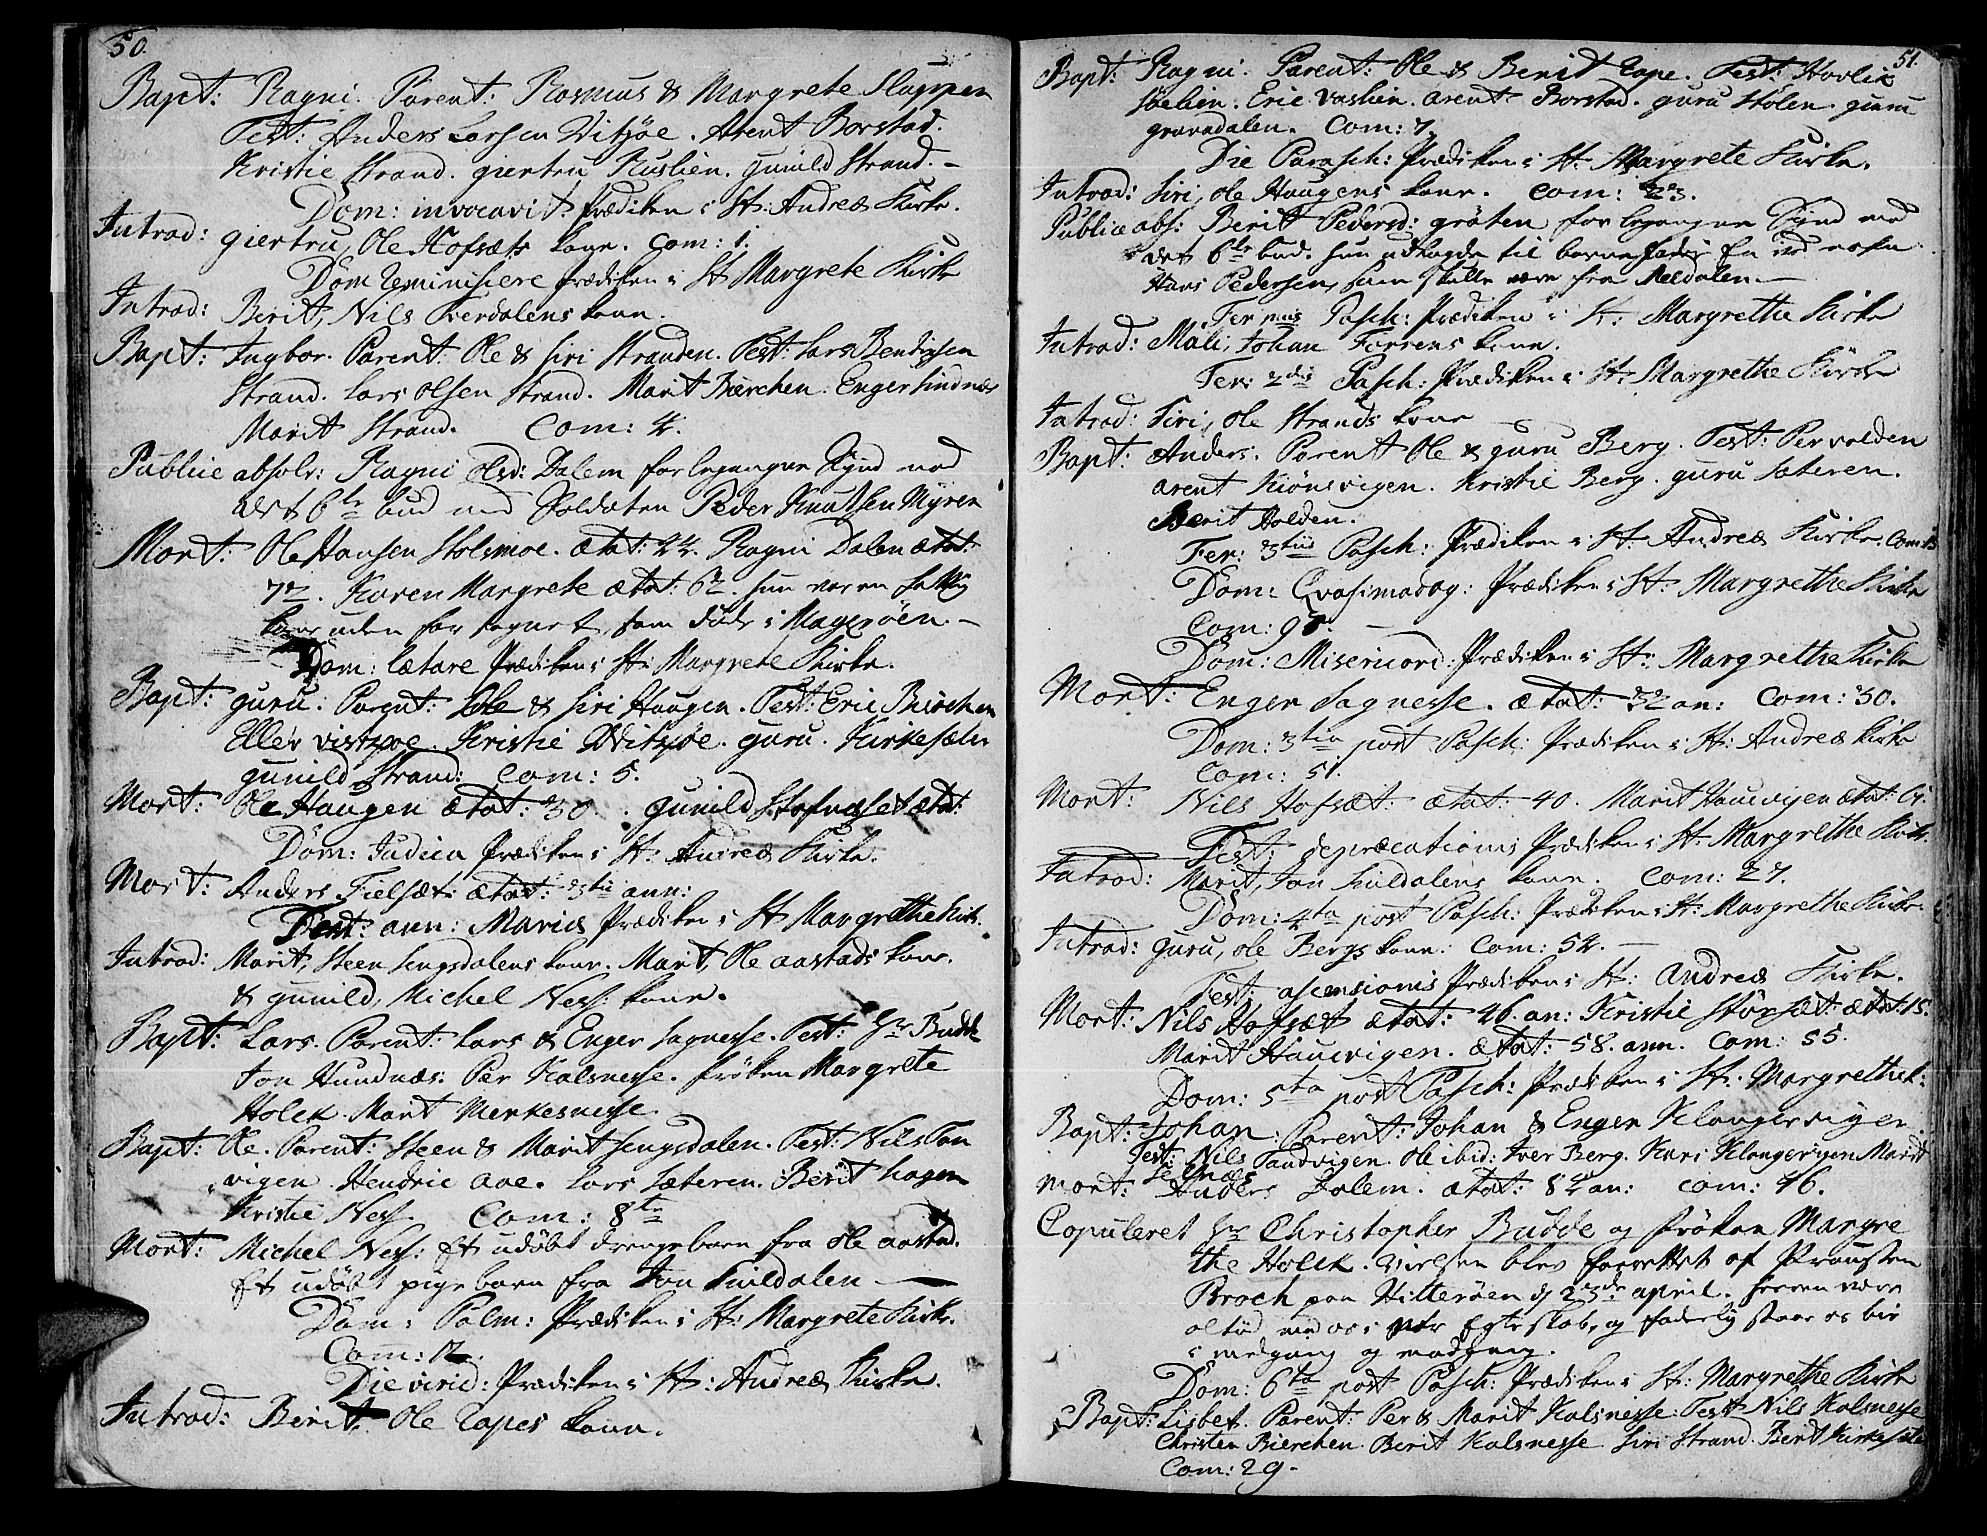 50.
Bapt: Ragni. Parent: Rasmus & Margrete Sluppen
Test: Anders Larsen Vitsøe. Arent Borstad.
Kristie Strand. giertru Kuslien. gunild Strand. –
Dom: invocavit Prædiken i St: Andreæ Kirke.
Introd: giertru, Ole Hofsæts kone. Com: 1.
Dom Reminisiere Prædiken i St Margrete Kirke
Introd: Berit, Nils Sverdalens kone.
Bapt: Ingbor. Parent: Ole & Siri Stranden. Test: Lars Bendixsen
Strand. Lars Olsen Strand. Marit Bierchen. Enger Sindnæs
Marit Strand. Com: 4.
Publice absolv: Ragni Olsd: Dalem for begangen Synd mod
det 6te bud med Soldaten Peder Knudsen Myren
Mort: Ole Hansen Stolsmoe. ætat: 24. Ragni Dalen ætat:
72. Karen Margrete ætat: 62. hun var en fattig
kone uden for sognet, som døde i Magerøen. –
Dom: lætare Prædiken i St: Margrete Kirke.
Bapt: guru: Parent: Ole & Siri Haugen. Test: Eric Bierchen
Ellev vistzoe. Kristie Witzøe. guru. Kirkesæter
gunild Strand: Com: 5.
Mort: Ole Haugen ætat: 30. gunild Stofnæset ætat:
Dom: Judica Prædiken i St: Andreæ Kirke.
Mort: Anders Fielsæt: ætat: 3tie ann:
Fest: ann: Mariæ Prædiken i St Margrethe Kirk.
Introd: Marit, Steen Lengsdalens kone. Marit, Ole aastads kone.
& gunild, Michel Ness: kone.
Bapt: Lars. Parent: Lars & Enger Sagnesse. Test: Hr Budde
Jon Hundnæs. Per Kalsnesse. Frøken Margrete
Holck. Marit Merkesnesse.
Bapt: Ole. Parent: Steen & Marit Lengsdalen. Test: Nils Tan
vigen. Hendric aae. Lars Sæteren. Berit hagen
Kristie Ness. Com: 8te
Mort: Michel Ness: Et udøbt drengebarn fra Ole aastad.
Et udøbt pigebarn fra Jon Kuldalen –
Dom: Palm: Prædiken i St: Margrete Kirke.
Com: 12.
Die virid: Prædiken i St: Andreæ Kirke.
Introd: Berit, Ole Tapes kone.
51.
Bapt: Ragni. Parent: Ole & Berit Tape. Test: Hovlik
Solien. Eric Vaslien. arent Borstad. guru Stolen. guru
gravadalen. Com: 7
Die Parasch: Prædiken i St: Margrete Kirke.
Introd: Siri, Ole Haugens kone. Com: 23.
Publice abs: Berit Pedersd: gråten for begangen Synd mod
det 6te bud. hun udlagde til barnefader En ved nafn
Hans Pedersen, som skulle være fra Meldalen. –
Fer: Pasch: Prædiken i St: Margrethe Kirke
Introd: Mali, Johan Forrens kone.
Fer: 2dis Pasch: Prædiken i St: Margrethe Kirke
Introd: Siri, Ole Strands kone
Bapt: Anders. Parent Ole & guru Berg. Test: Per volden
arent Kiønsvigen. Kristie Berg. guru Sæteren.
Berit Holden.
Fer: 3tiis Pasch: Prædiken i St: Andreæ Kirke. Com:
Dom: Qvasimodog: Prædiken i St: Margrethe Kirke
Com:
Dom: Misericord: Prædiken i St: Margrethe Kirke
Mort: Enger Sagnesse. ætat: 32 an: Com: 30.
Dom: 3tia post Pasch: Prædiken i St: Andreæ kirke
Com: 51.
Mort: Nils Hofsæt: ætat: 40. Marit Hauvigen ætat:
Fest: deprecationis Prædiken i St: Margrethe Kirk.
Introd: Marit, Jon Kuldalens kone. Com: 27.
Dom: 4ta post Pasch: Prædiken i St: Margrethe Kirke
Introd: guru, Ole Bergs kone. Com: 54. –
Fest: asensionis Prædiken i St: Andreæ Kirke.
Mort: Nils Hofsæt ætat: 46. an: Kristie Störsæt: ætat 15.
Marit Hauevigen. ætat: 58. ann. Com: 55.
Dom: 5ta post Pasch: Prædiken i St: Margrethe k:
Bapt: Johan. Parent: Johan & Enger Klangervigen.
Test: Nils Sandvigen. Ole ibid: Iver Berg. Kari Klangervigen Marit
Selnæs
Mort: Anders Dalem. ætat: 82 an: Com: 46.
Copuleret Hr Christopher Budde og frøken Margre
the Holck. Vielsen blev forrettet af Provsten
Broch paa Hitterøen d 23de april. herren være
altid med os i vor Egteskab, og faderlig staae os bie
i medgang og modgang.
Dom: 6ta post Pasch: Prædiken i St: Margrethe Kirke
Bapt: Lisbet. Parent: Per & Marit Kalsnesse. Test Nils Kalsnesse
Christen Bierchen. Berit Kalsnesse. Siri Strand. Berit Kirkesæter
Com: 29 –